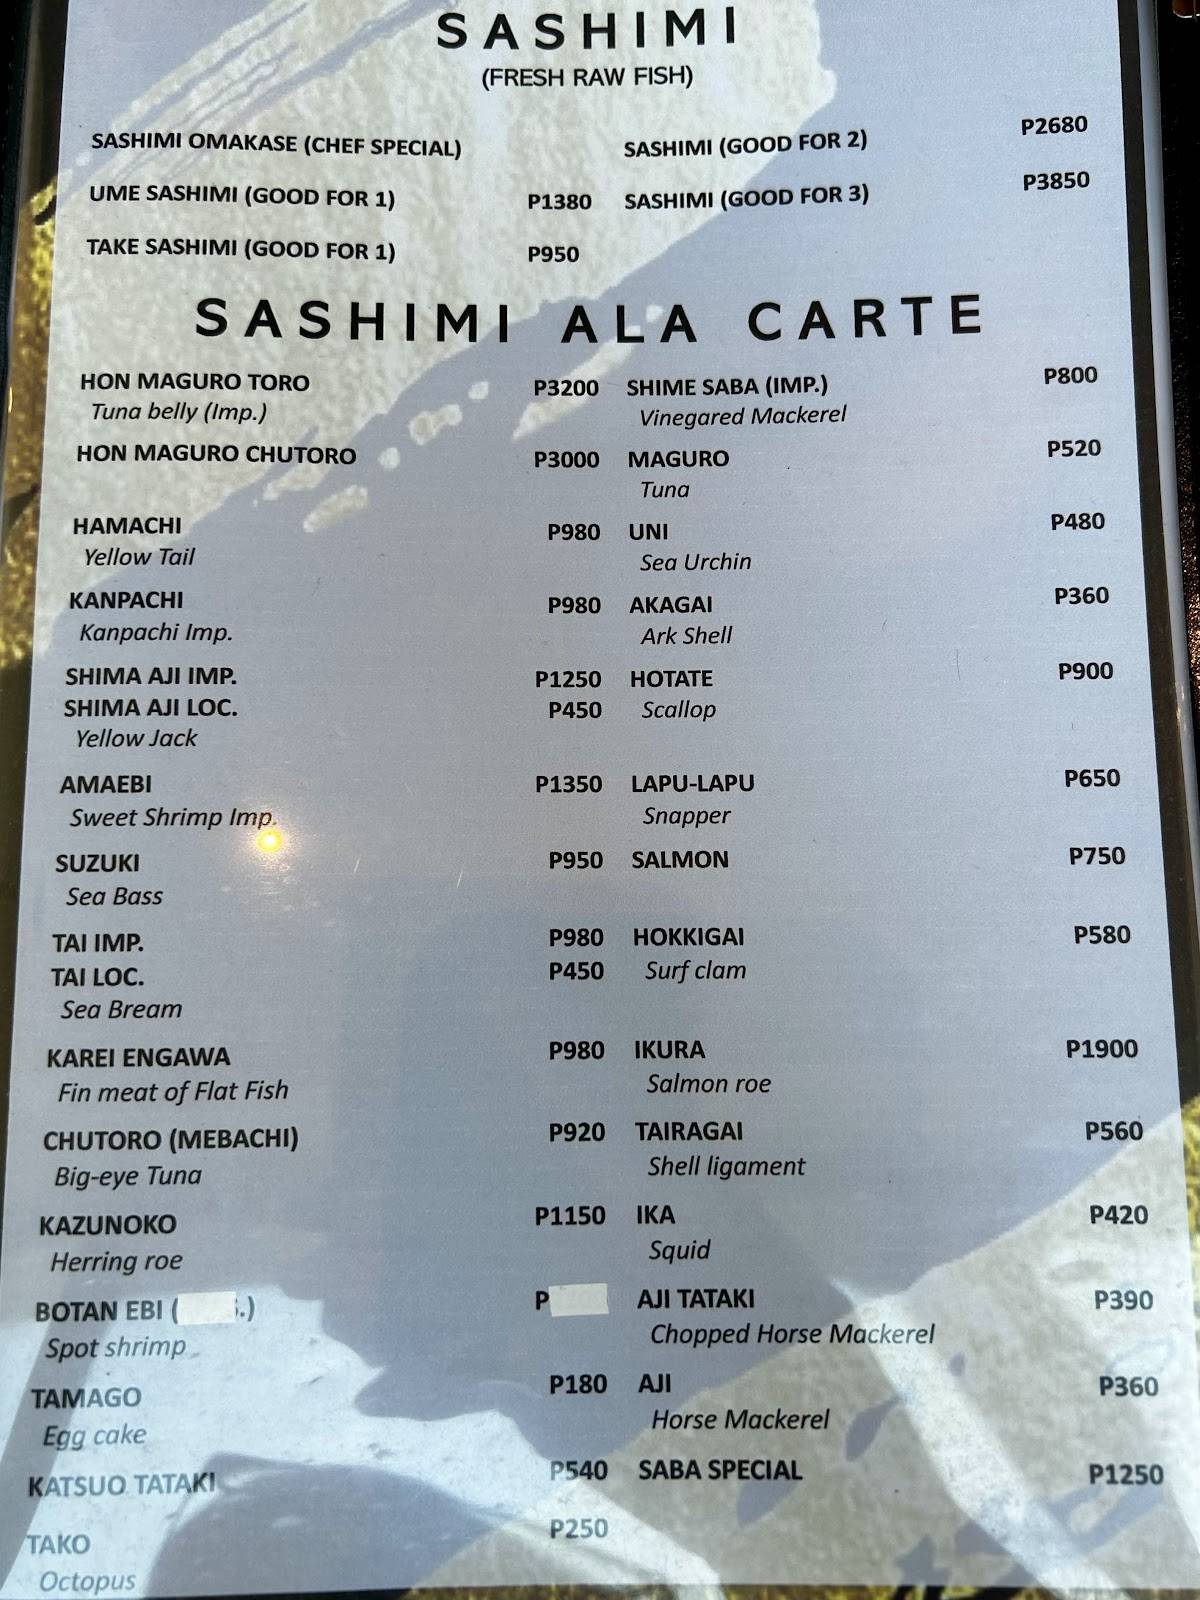 SASHIMI
(FRESH RAW FISH)
SASHIMI OMAKASE (CHEF SPECIAL)
UME SASHIMI (GOOD FOR 1) P1380
TAKE SASHIMI (GOOD FOR 1) P950
SASHIMI (GOOD FOR 2) P2680
SASHIMI (GOOD FOR 3) P3850
SASHIMI ALA CARTE
HON MAGURO TORO P3200
Tuna belly (Imp.)
HON MAGURO CHUTORO P3000
HAMACHI P980
Yellow Tail
KANPACHI P980
Kanpachi Imp.
SHIMA AJI IMP. P1250
SHIMA AJI LOC. P450
Yellow Jack
AMAEBI P1350
Sweet Shrimp Imp.
SUZUKI P950
Sea Bass
TAI IMP. P980
TAI LOC. P450
Sea Bream
KAREI ENGAWA P980
Fin meat of Flat Fish
CHUTORO (MEBACHI) P920
Big-eye Tuna
KAZUNOKO P1150
Herring roe
BOTAN EBI ( .) P
Spot shrimp
TAMAGO P180
Egg cake
KATSUO TATAKI P540
TAKO P250
Octopus
SHIME SABA (IMP.) P800
Vinegared Mackerel
MAGURO P520
Tuna
UNI P480
Sea Urchin
AKAGAI P360
Ark Shell
HOTATE P900
Scallop
LAPU-LAPU P650
Snapper
SALMON P750
HOKKIGAI P580
Surf clam
IKURA P1900
Salmon roe
TAIRAGAI P560
Shell ligament
IKA P420
Squid
AJI TATAKI P390
Chopped Horse Mackerel
AJI P360
Horse Mackerel
SABA SPECIAL P1250